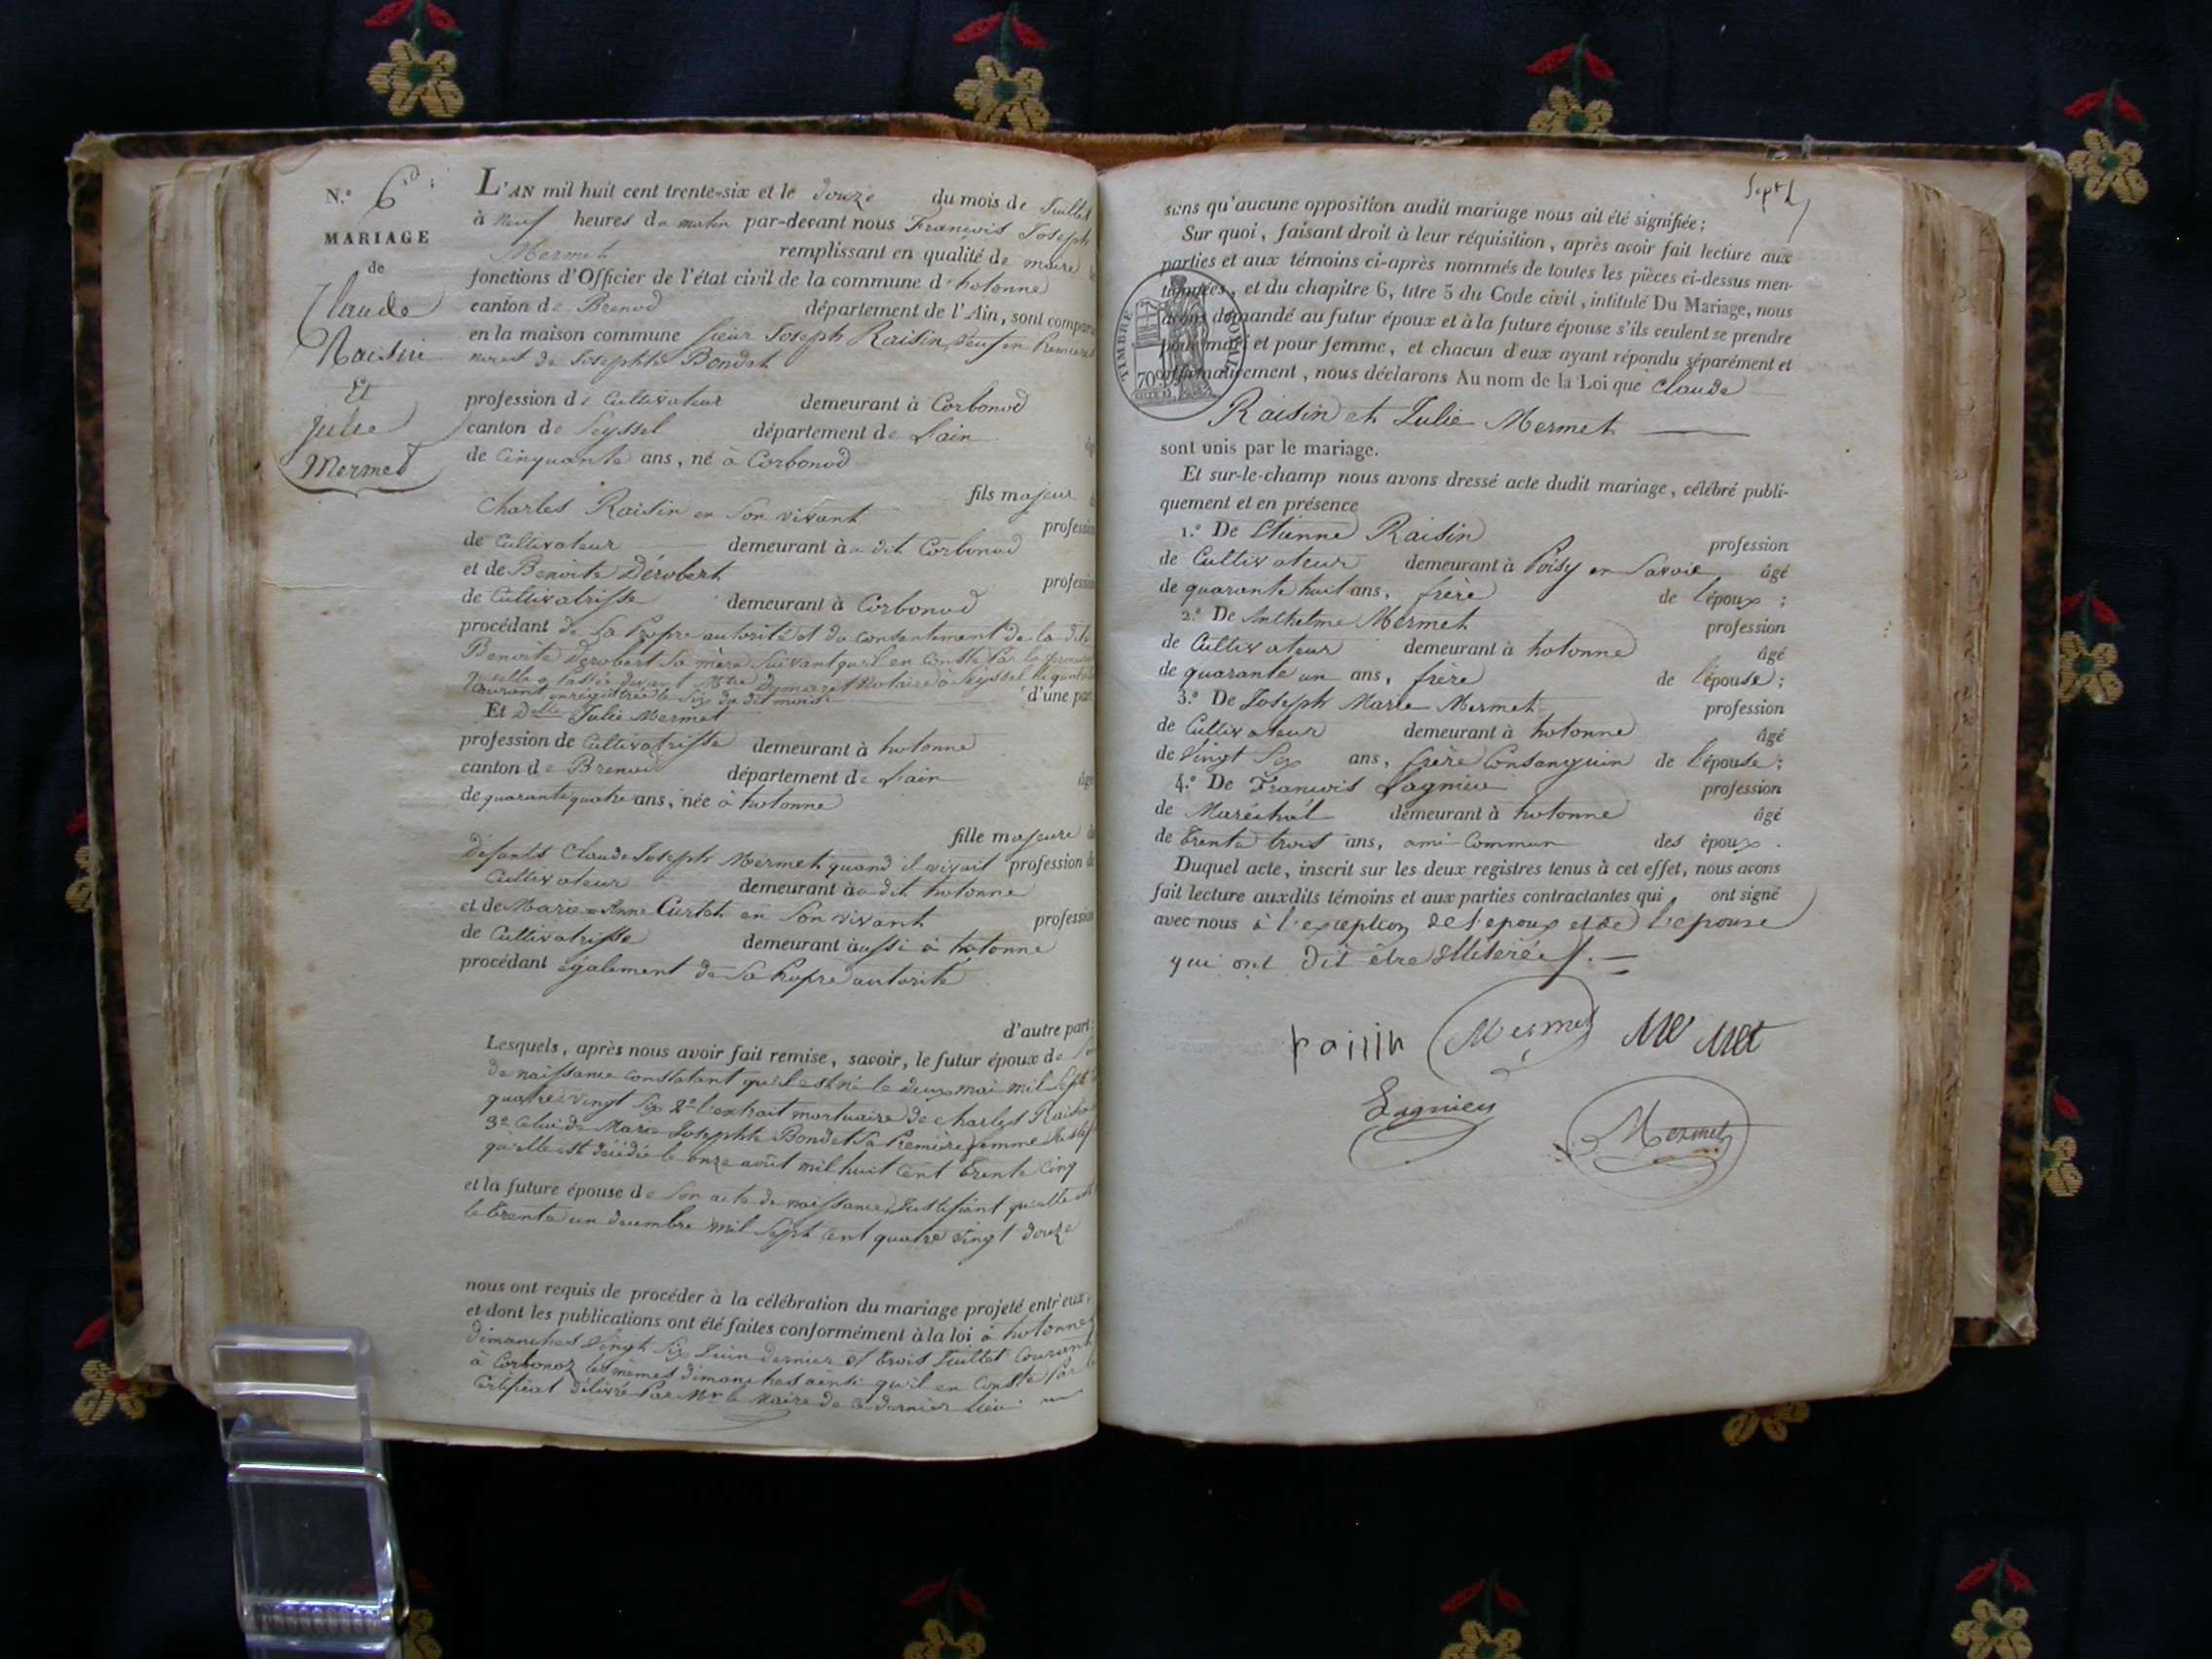 N.º 6.
MARIAGE
de
Claude
Raisin
Et
Julie
Mermet
L'AN mil huit cent trente-six et le douze du mois de Juillet
à neuf heures du matin par-devant nous François Joseph
Mermet remplissant en qualité de maire
fonctions d'Officier de l'état civil de la commune d'hotonne
canton de Brenod département de l'Ain, sont comparu
en la maison commune sieur Joseph Raisin, veuf en Premieres
noces de Josephte Bondet
profession de Cultivateur demeurant à Corbonod
canton de Seyssel département de L'ain
de Cinquante ans, né à Corbonod
fils majeur
Charles Raisin en Son vivant profession
de Cultivateur demeurant au dit Corbonod
et de Benoite Dérobert profession
de Cultivatrisse demeurant à Corbonod
procédant de Sa Propre autorité et du consentement de la dite
Benoite Derobert Sa mère Suivant qu'il en Conste Par la
qu'elle a passée devant Mtre Notaire à Seyssel le
Courant enregistrée le Six du dit mois d'une part
Et Delle Julie Mermet
profession de Cultivatrisse demeurant à hotonne
canton de Brenod département de L'ain âgé
de quarante quatre ans, née à hotonne
fille majeure
défunts Claude Joseph Mermet quand il vivait profession de
Cultivateur demeurant au dit hotonne
et de Marie-Anne Curtet en Son vivant profession
de Cultivatrisse demeurant aussi à hotonne
procédant également de Sa Propre autorité
d'autre part;
Lesquels, après nous avoir fait remise, savoir, le futur époux de
de naissance constatant qu'il est né le deux mai mil Sept
quatre vingt Six 2º l'extrait mortuaire de Charles Raisin
3º Celui de Marie Josephte Bondet Sa Première femme
qu'elle est décédée le onze août mil huit Cent Trente Cinq
et la future épouse de Son acte de naissance, Justifiant qu'elle est
le Trente un decembre mil Sept Cent quatre vingt douze
nous ont requis de procéder à la célébration du mariage projeté entr'eux,
et dont les publications ont été faites conformément à la loi à hotonne
dimanches Vingt Six Juin dernier et trois Juillet Courant
à Corbonoz les mêmes dimanches ainsi qu'il en Conste Par
Certificat délivré Par Mr le Maire de Ce dernier Lieu.
Sept
sans qu'aucune opposition audit mariage nous ait été signifiée;
Sur quoi, faisant droit à leur réquisition, après avoir fait lecture aux
parties et aux témoins ci-après nommés de toutes les pièces ci-dessus men-
tionnées, et du chapitre 6, titre 5 du Code civil, intitulé Du Mariage, nous
avons demandé au futur époux et à la future épouse s'ils veulent se prendre
pour mari et pour femme, et chacun d'eux ayant répondu séparément et
affirmativement, nous déclarons Au nom de la Loi que Claude
TIMBRE ROYAL
70
Raisin et Julie Mermet
sont unis par le mariage.
Et sur-le-champ nous avons dressé acte dudit mariage, célébré publi-
quement et en présence
1.º De Etienne Raisin profession
de Cultivateur demeurant à Poisy en Savoie âgé
de quarante huit ans, frère de l'époux;
2.º De Anthelme Mermet profession
de Cultivateur demeurant à hotonne âgé
de quarante un ans, frère de l'épouse;
3.º De Joseph Marie Mermet profession
de Cultivateur demeurant à hotonne âgé
de Vingt Six ans, frère Consanguin de l'épouse;
4.º De François Lagnieu profession
de Maréchal demeurant à hotonne âgé
de Trente trois ans, ami Commun des époux.
Duquel acte, inscrit sur les deux registres tenus à cet effet, nous avons
fait lecture auxdits témoins et aux parties contractantes qui ont signé
avec nous à l'exeption de l'epoux et de l'epouse
qui ont dit être illitérés.
raisin Mermet Mermet
Lagnieu
Mermet